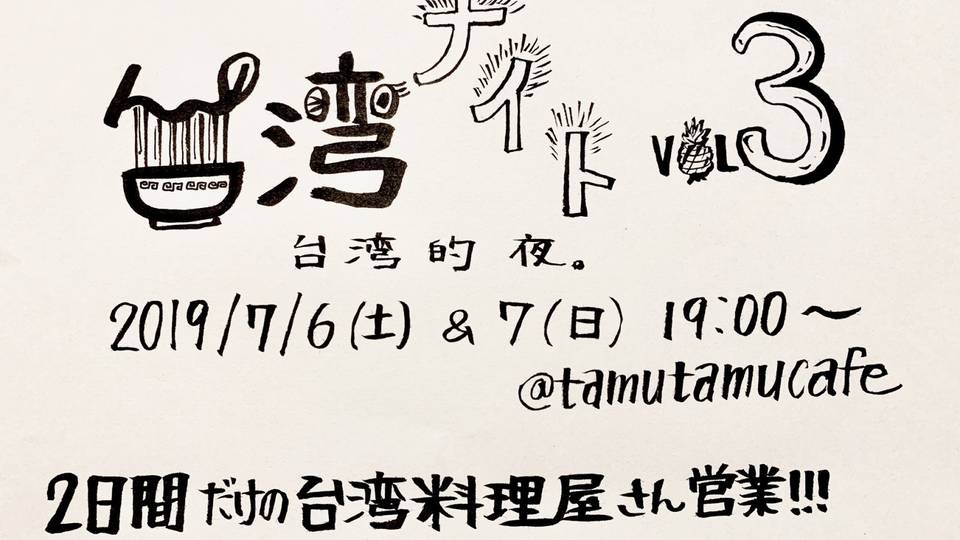 台湾ナイト VOL 3
台湾的 夜。
2019/7/6(土) & 7(日) 19:00〜
@tamutamucafe
2日間だけの台湾料理屋さん営業!!!